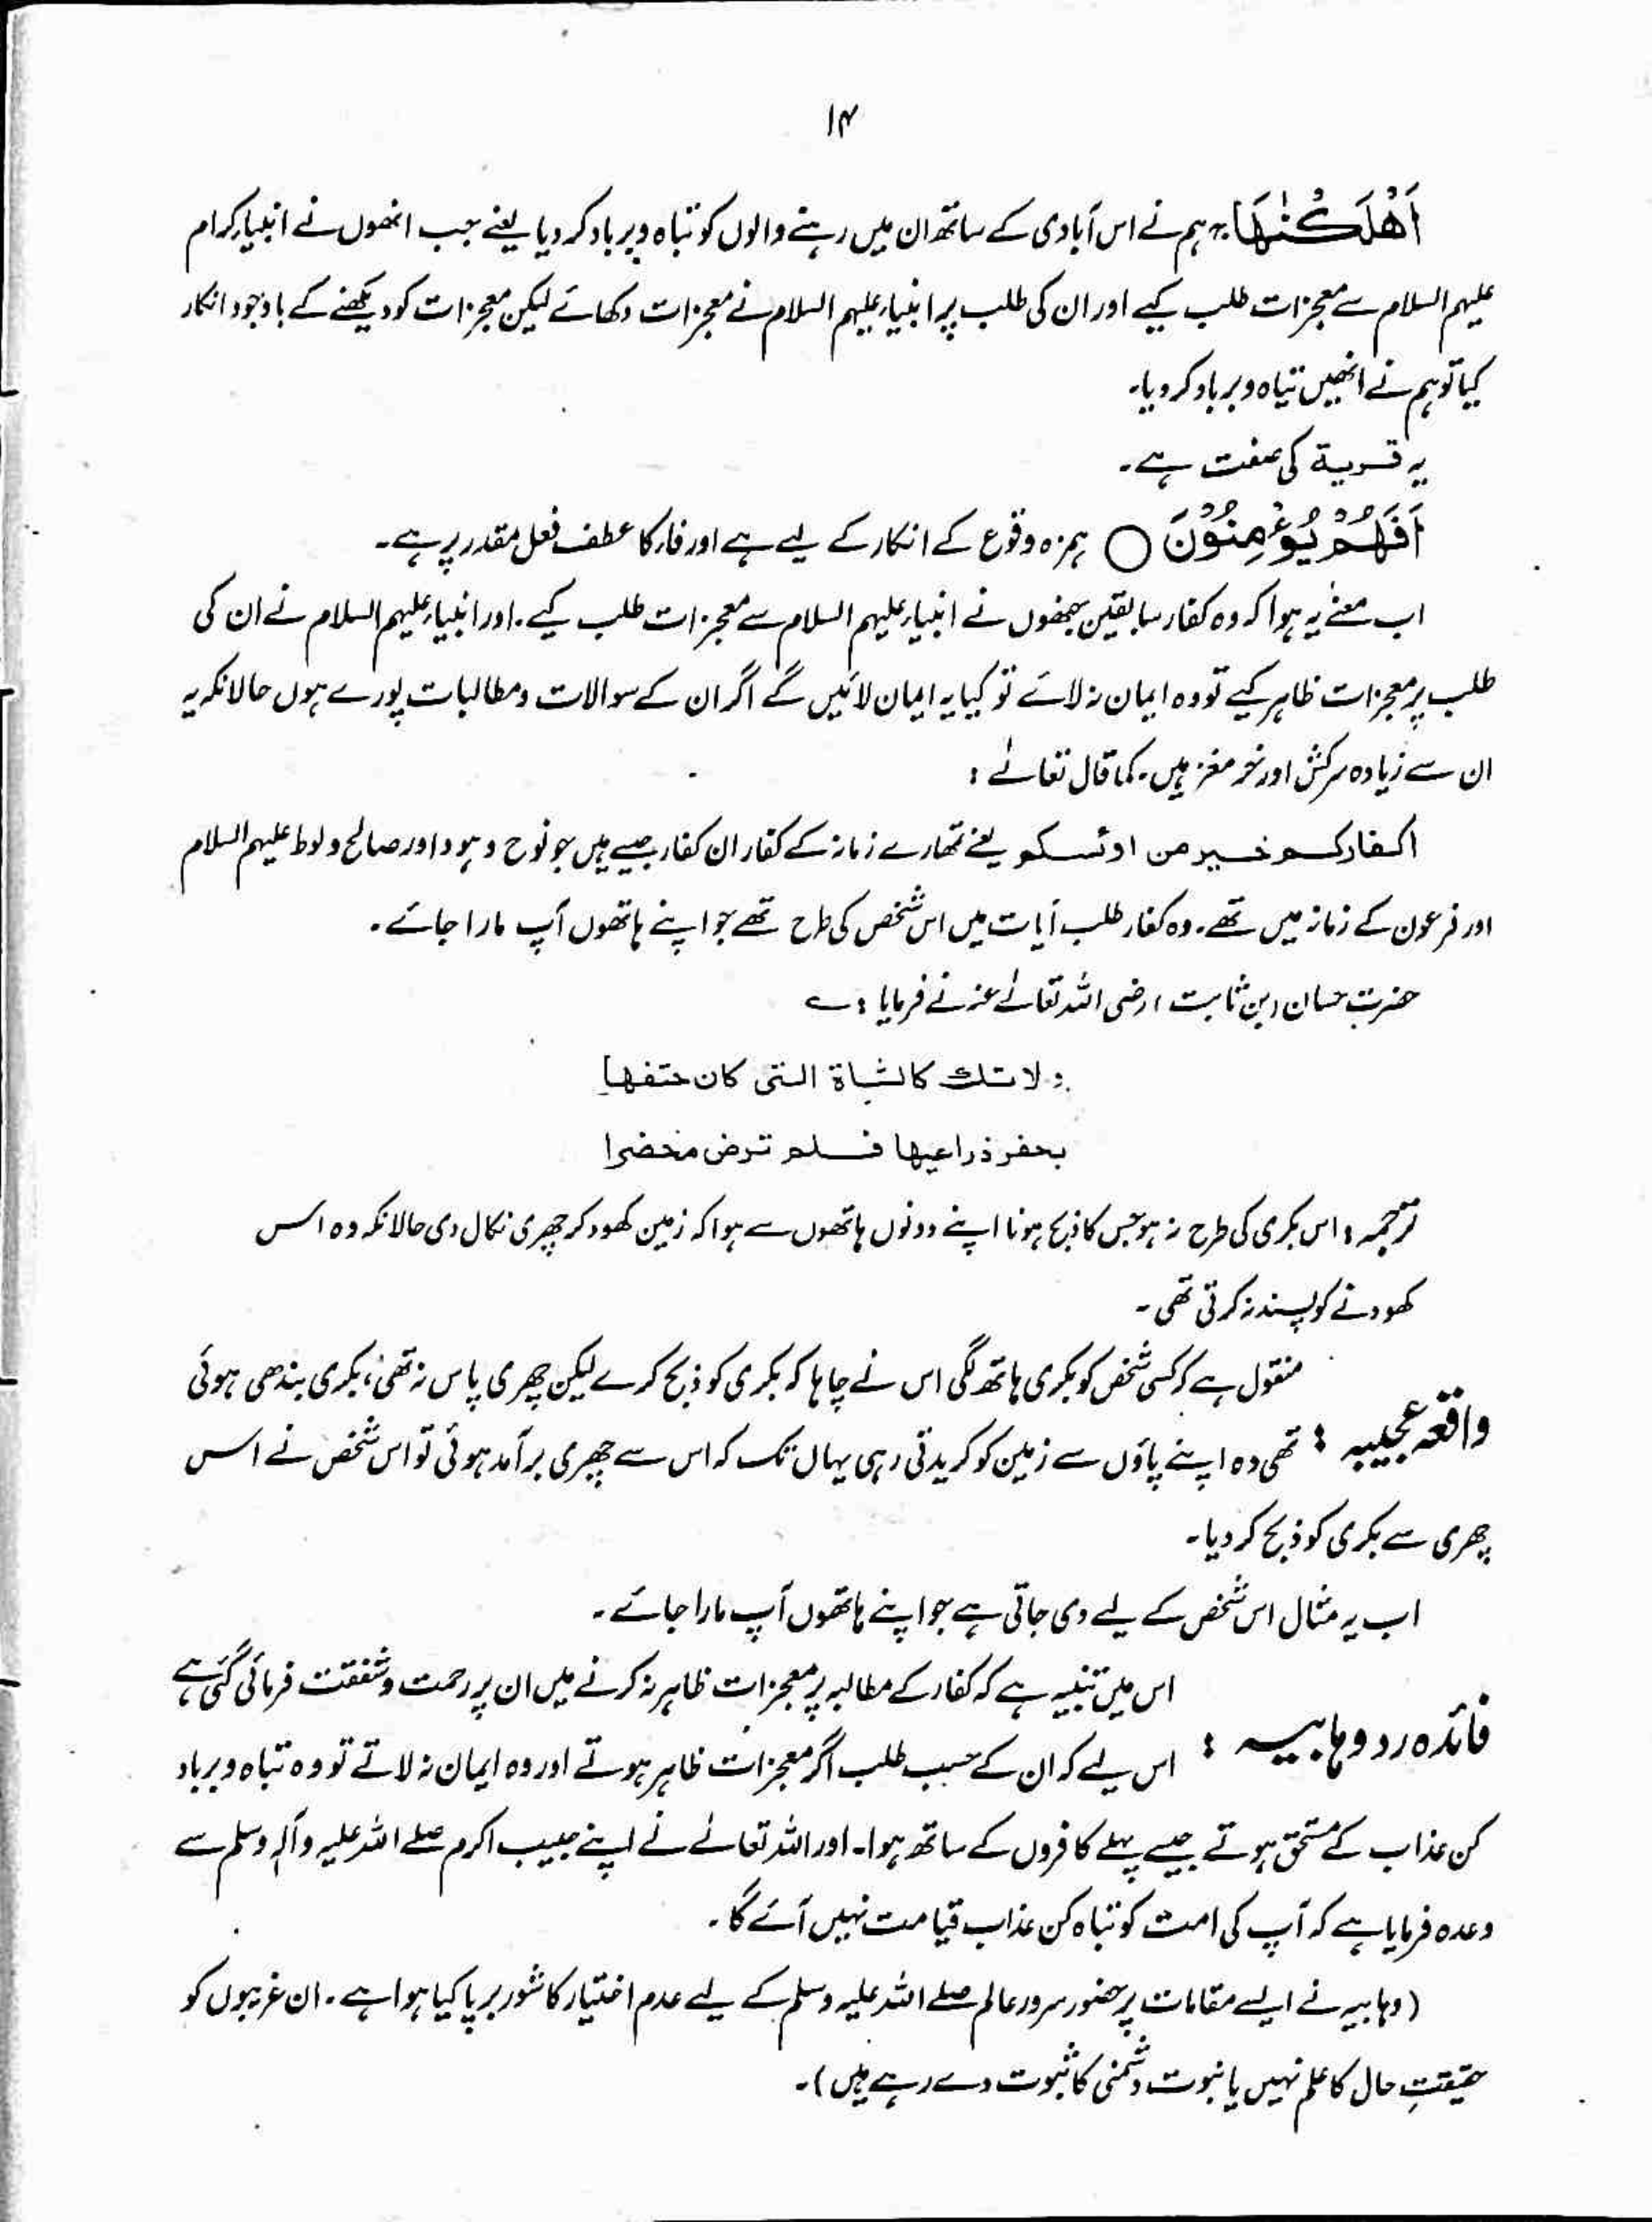 ۱۴
اَهْلَكْنٰهَا۔ ہم نے اس آبادی کے ساتھ ان میں رہنے والوں کو تباہ و برباد کر دیا یعنے جب انھوں نے انبیاء کرام
علیہم السلام سے معجزات طلب کیے اور ان کی طلب پر انبیاء علیہم السلام نے معجزات دکھائے لیکن معجزات کو دیکھنے کے باوجود انکار
کیا تو ہم نے انھیں تباہ و برباد کر دیا۔
یہ قریة کی صفت ہے۔
اَفَهُمْ يُؤْمِنُوْنَ ○ ہمزہ وقوع کے انکار کے لیے ہے اور فار کا عطف فعل مقدر پر ہے۔
اب معنےٰ یہ ہوا کہ وہ کفار سابقین جنھوں نے انبیاء علیہم السلام سے معجزات طلب کیے۔ اور انبیاء علیہم السلام نے ان کی
طلب پر معجزات ظاہر کیے تو وہ ایمان نہ لائے تو کیا یہ ایمان لائیں گے اگر ان کے سوالات و مطالبات پورے ہوں حالانکہ یہ
ان سے زیادہ سرکش اور خرمغز ہیں۔ کما قال تعالےٰ :
اکفارکم خیر من اولئکم یعنے تمھارے زمانہ کے کفار ان کفار جیسے ہیں جو نوح و ہود اور صالح و لوط علیہم السلام
اور فرعون کے زمانہ میں تھے۔ وہ کفار طلب آیات میں اس شخص کی طرح تھے جو اپنے ہاتھوں آپ مارا جائے۔
حضرت حسان (بن ثابت) رضی اللہ تعالےٰ عنہ نے فرمایا : ؎
ولا تك كالشاة التی كان حتفها
بحفر ذراعیها فلم ترض محضرا
ترجمہ : اس بکری کی طرح نہ ہو جس کا ذبح ہونا اپنے دونوں ہاتھوں سے ہوا کہ زمین کھود کر چھری نکال دی حالانکہ وہ اس
کھودنے کو پسند نہ کرتی تھی۔
منقول ہے کہ کسی شخص کو بکری ہاتھ لگی اس نے چاہا کہ بکری کو ذبح کرے لیکن چھری پاس نہ تھی، بکری بندھی ہوئی
واقعہ عجیبہ : تھی وہ اپنے پاؤں سے زمین کو کریدتی رہی یہاں تک کہ اس سے چھری برآمد ہوئی تو اس شخص نے اس
چھری سے بکری کو ذبح کر دیا۔
اب یہ مثال اس شخص کے لیے دی جاتی ہے جو اپنے ہاتھوں آپ مارا جائے۔
اس میں تنبیہ ہے کہ کفار کے مطالبہ پر معجزات ظاہر نہ کرنے میں ان پر رحمت و شفقت فرمائی گئی ہے
فائدہ رد وہابیہ : اس لیے کہ ان کے حسب طلب اگر معجزات ظاہر ہوتے اور وہ ایمان نہ لاتے تو وہ تباہ و برباد
کن عذاب کے مستحق ہوتے جیسے پہلے کافروں کے ساتھ ہوا۔ اور اللہ تعالےٰ نے اپنے حبیب اکرم صلے اللہ علیہ وآلہٖ وسلم سے
وعدہ فرمایا ہے کہ آپ کی امت کو تباہ کن عذاب قیامت نہیں آئے گا۔
(وہابیہ نے ایسے مقامات پر حضور سرور عالم صلے اللہ علیہ وسلم کے لیے عدم اختیار کا شور برپا کیا ہوا ہے۔ ان غریبوں کو
حقیقتِ حال کا علم نہیں یا نبوت دشمنی کا ثبوت دے رہے ہیں)۔